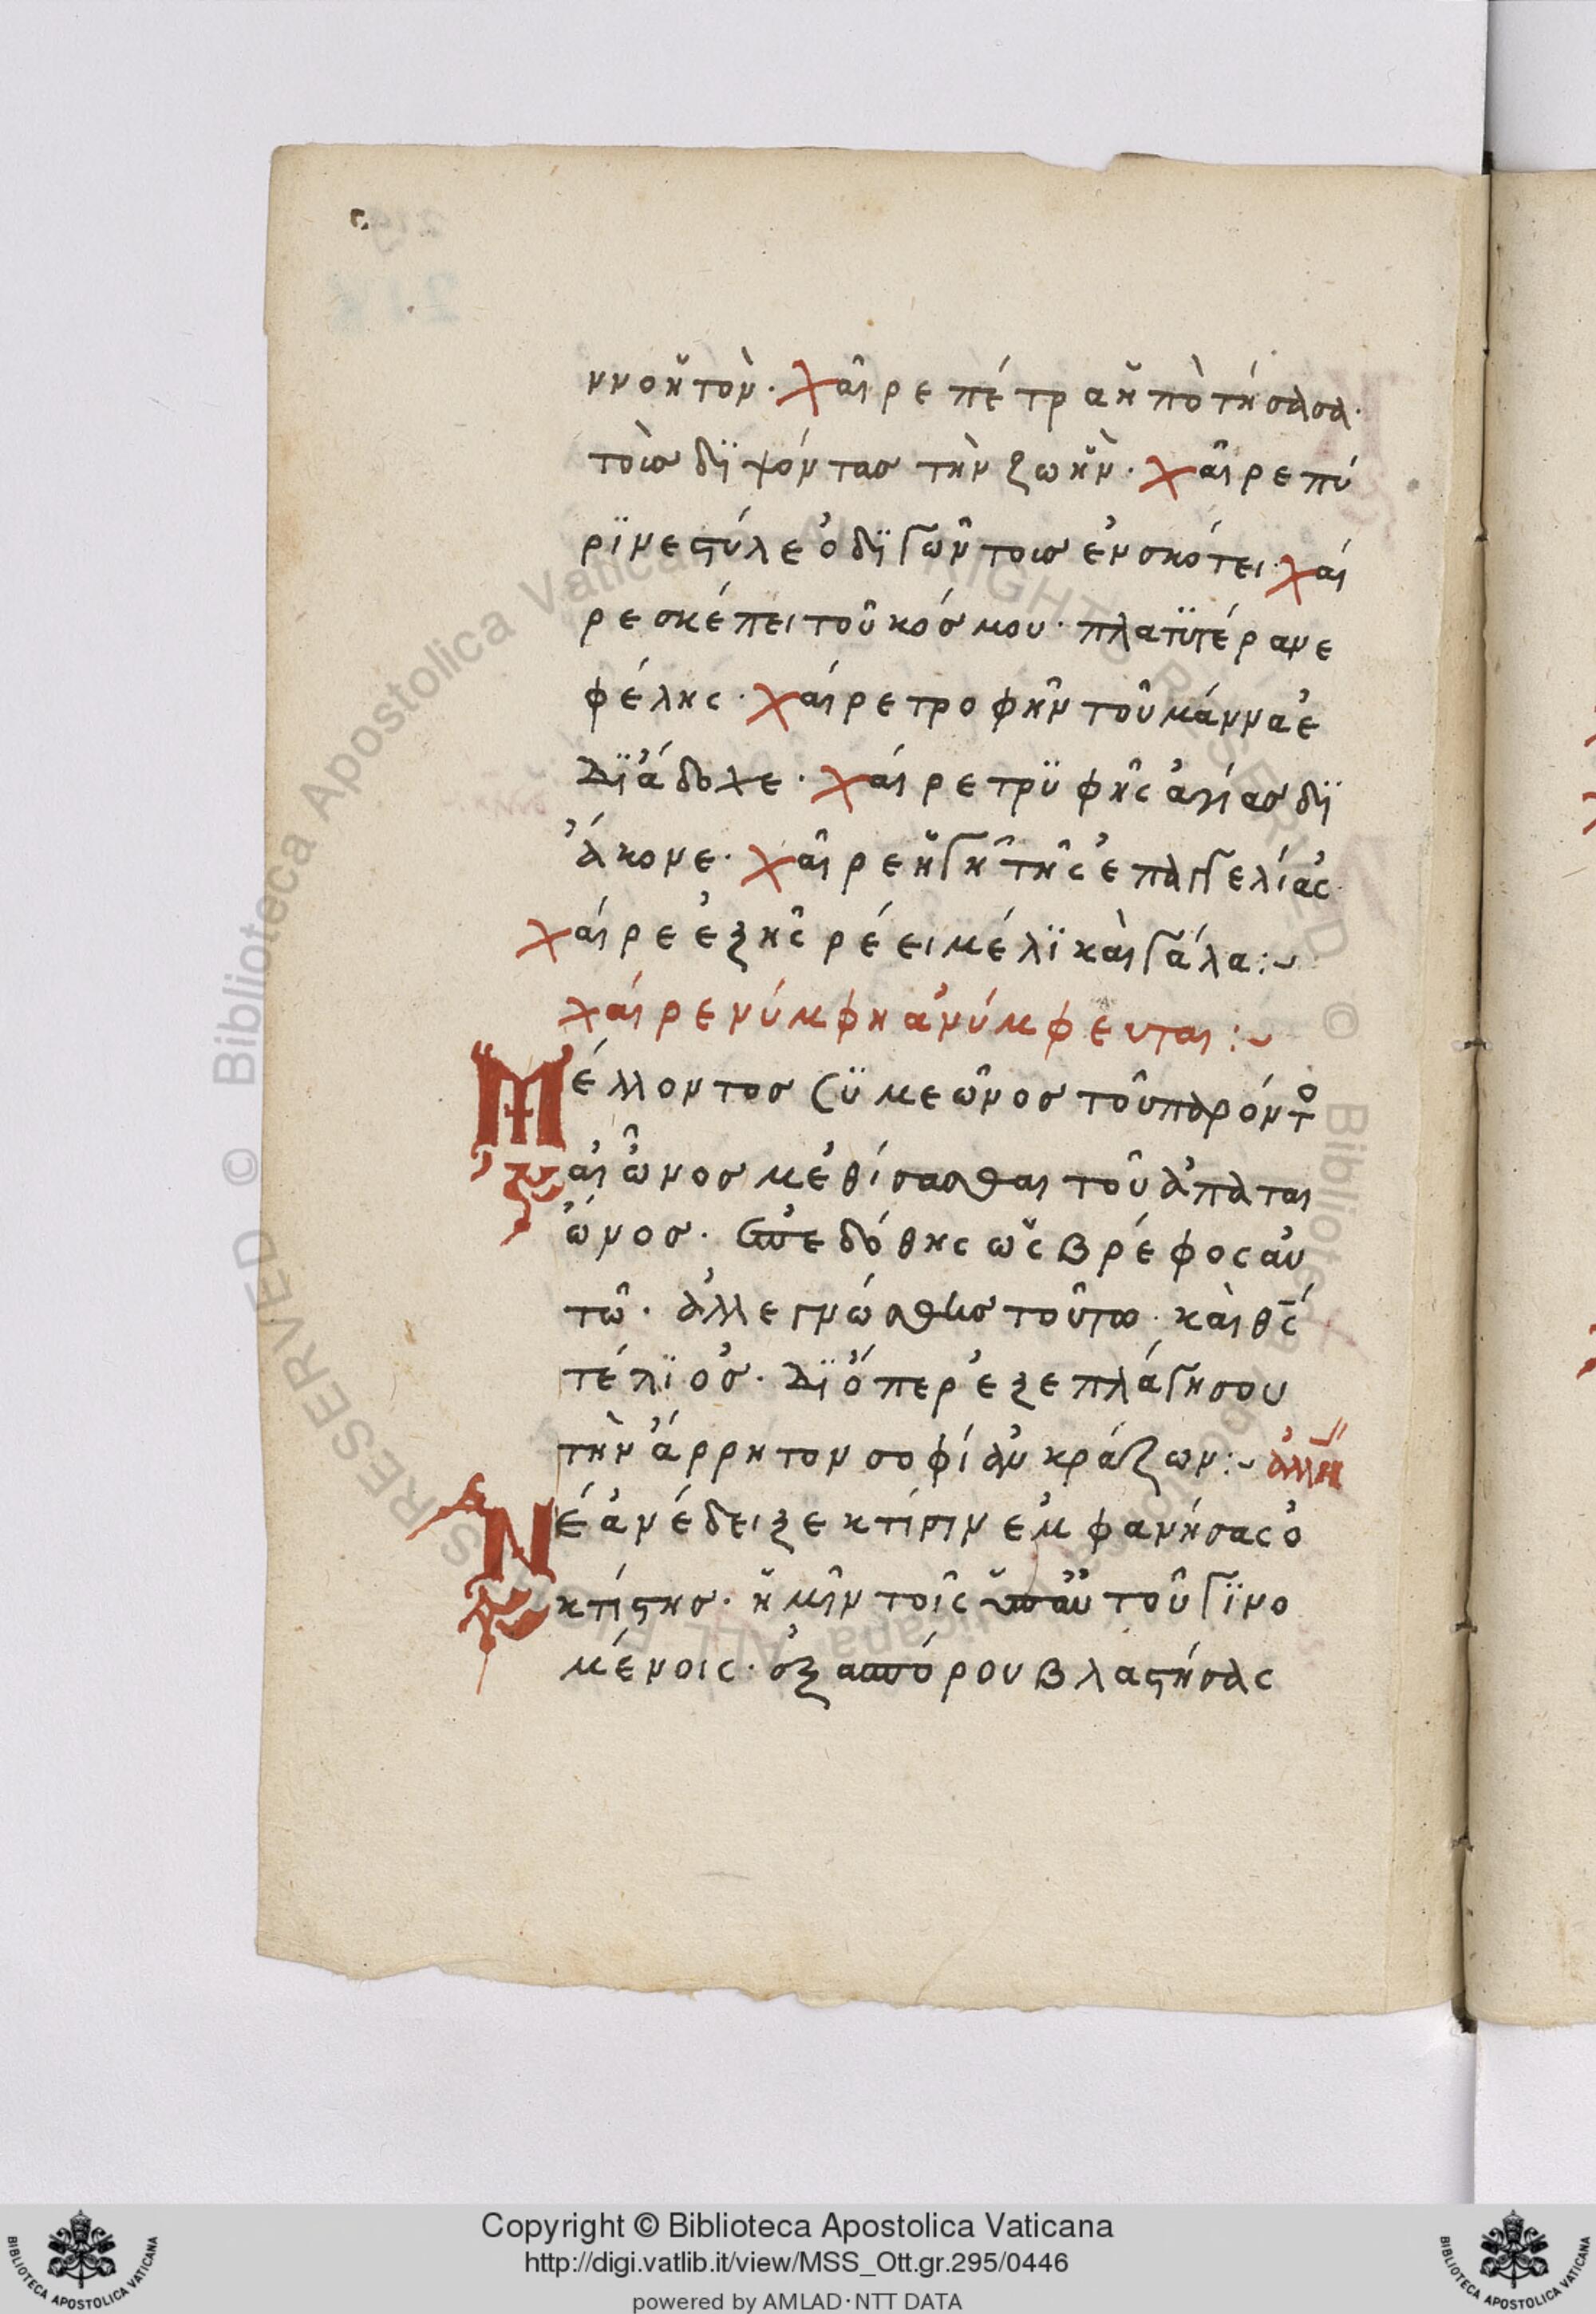 ννοῆτὸν· Χαῖρε πέτρα ἣ πὸτήσασα·
τοὶσ δϊψόντασ τὴν ζωῆν· Χαῖρε πύ
ρϊνε ςύλε ὁδϊγῶν τοισ ἐνσκότει· Χαί
ρε σκέπει τοῦ κόσμου· πλατϋτέρα νε
φέλης· Χαίρε τροφῆν τοῦ μάννα ἐ
Διάδοχε· Χαίρε τρϋφῆς ἁγίασ δϊ
άκονε· Χαῖρε ἡ γῆ τῆς ἐπαγγελίας·
Χαίρε ἐξ ἧς ρέει μέλϊ καὶ γάλα:~
χαίρε νύμφη ἀνύμφευται:~
Μέλλοντοσ Σϋμεῶνοσ τοῦ παρόντο
αἰῶνοσ μἐθίσασθαι τοῦ ἀπαται
ώνοσ· ἐπεδόθης ὡς βρέφος αυ
τῶ· ἀλλ εγνώσθησ τοῦτω· καὶ θς
τέλϊοσ· Διόπερ ἐξεπλάγη σου
τὴν ἄρρητον σοφίαν κράζων:~ ἀλλη
Νέαν έδειξε κτίσιν ἐμφανήσας ὁ
κτίςησ· ἡμῖν τοῖς ὑπ αὐτοῦ γϊνο
μένοις· ἐξ ασπόρου βλαςήσας
Copyright © Biblioteca Apostolica Vaticana
http://digi.vatlib.it/view/MSS_Ott.gr.295/0446
powered by AMLAD·NTT DATA